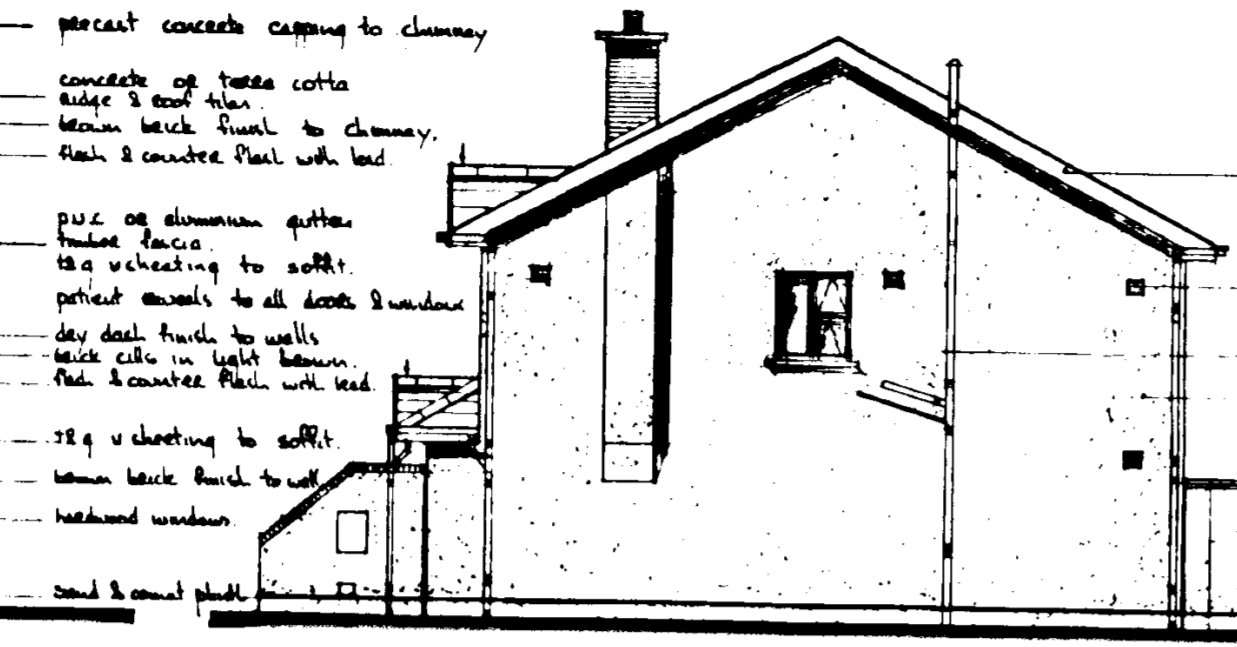 precast concrete capping to chimney
concrete or terra cotta
ridge & roof tiles.
brown brick finish to chimney.
flash & counter flash with lead.
p.v.c or aluminium gutters
timber fascia.
t&g v sheeting to soffit.
patient reveals to all doors & windows
dry dash finish to walls
brick cills in light brown.
flash & counter flash with lead.
t&g v sheeting to soffit.
brown brick finish to wall
hardwood windows.
sand & cement plinth